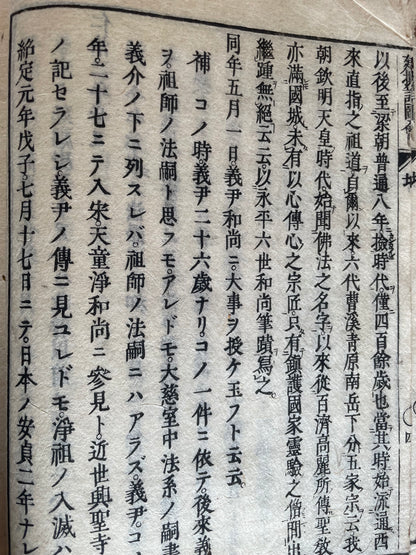 以後至梁朝普通八年撿時代僅四百餘歲也當其時始流通西
來直指之祖道自爾以來六代曹溪青原南岳下分五家宗云我
朝欽明天皇時代始聞佛法之名字以來從百濟高麗所傳聖敎
亦滿國城未有以心傳心之宗匠只有鎭護國家靈驗之僧間出
繼踵無絕云云以永平六世和尚筆蹟寫之
同年五月一日義尹和尚ニ大事ヲ授ケ玉フト云云
補コノ時義尹二十六歲ナリコノ一件ニ依テ後來義
ヲ祖師ノ法嗣ト思フモアレドモ大慈室中法系ノ嗣書
義介ノ下ニ列スレバ祖師ノ法嗣ニハアラズ義尹コ
年二十七ニテ入宋天童淨和尚ニ參見ト近世興聖寺
ノ記セラレシ義尹ノ傳ニ見ユレドモ淨祖ノ入滅ハ
紹定元年戊子七月十七日ニテ日本ノ安貞二年ナレ